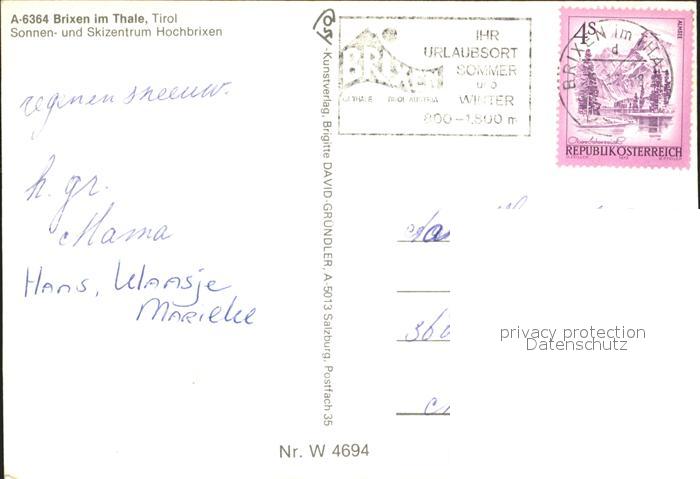 A-6364 Brixen im Thale, Tirol
Sonnen- und Skizentrum Hochbrixen
regen en sneeuw.
h. gr.
Mama
Hans, Klaasje
Marieke
Kunstverlag, Brigitte DAVID-GRÜNDLER, A-5013 Salzburg, Postfach 35
BRIXEN
IM THALE TIROL AUSTRIA
IHR
URLAUBSORT
SOMMER
und
WINTER
800-1.800 m
4S
ALMSEE
REPUBLIK ÖSTERREICH
BRIXEN im THA
d
privacy protection
Datenschutz
Nr. W 4694